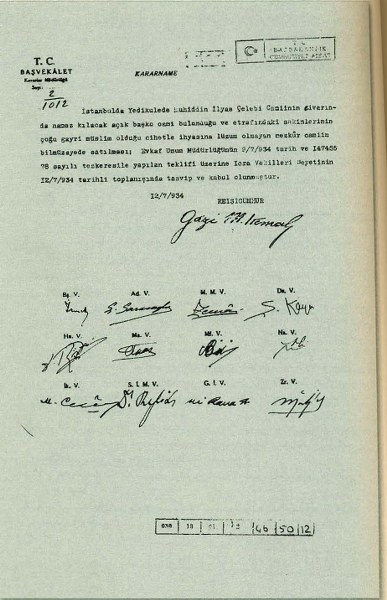 T. C.
BAŞVEKÂLET
Kararlar Müdürlüğü
Sayı
2
1012
KARARNAME
T. C.
BAŞBAKANLIK
CUMHURİYET ARŞİVİ
İstanbulda Yedikulede Muhiddin İlyas Çelebi Camiinin civarın-
da namaz kılacak açık başka cami bulunduğu ve etrafındaki sakinlerinin
çoğu gayri müslim olduğu cihetle ihyasına lüzum olmayan mezkûr camiin
bilmüzayede satılması; Evkaf Umum Müdürlüğünün 9/7/934 tarih ve 147455
78 sayılı tezkeresile yapılan teklifi üzerine İcra Vekilleri Heyetinin
12/7/934 tarihli toplanışında tasvip ve kabul olunmuştur.
12/7/934
REİSİCÜMHUR
Gazi M. Kemal
Bş. V. Ad. V. M. M. V. Da. V.
Ş. Kaya
Ha. V. Ma. V. Mf. V. Na. V.
İk. V. S. İ. M. V. G. İ. V. Zr. V.
46 50 12